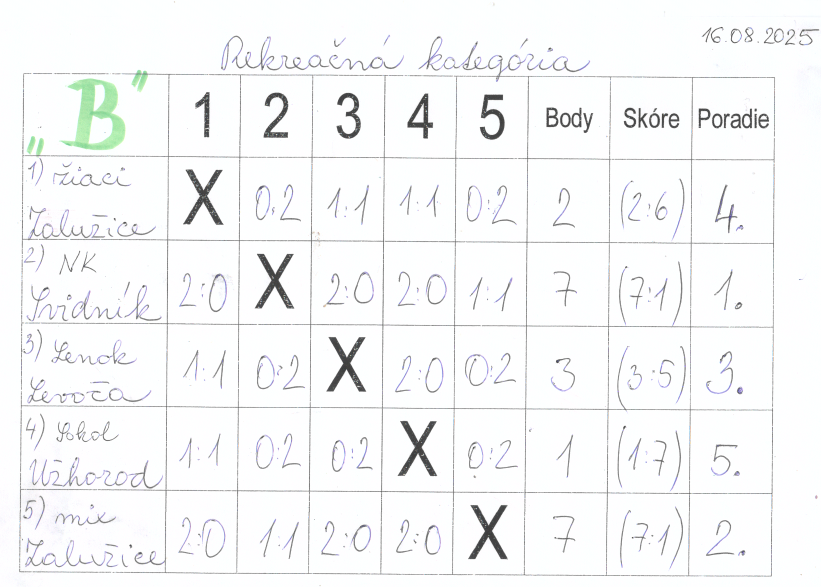 16.08.2025
Rekreačná kategória
„B" 1 2 3 4 5 Body Skóre Poradie
1) žiaci Zalužice X 0:2 1:1 1:1 0:2 2 (2:6) 4.
2) NK Svidník 2:0 X 2:0 2:0 1:1 7 (7:1) 1.
3) Lenok Levoča 1:1 0:2 X 2:0 0:2 3 (3:5) 3.
4) Sokol Užhorod 1:1 0:2 0:2 X 0:2 1 (1:7) 5.
5) mix Zalužice 2:0 1:1 2:0 2:0 X 7 (7:1) 2.